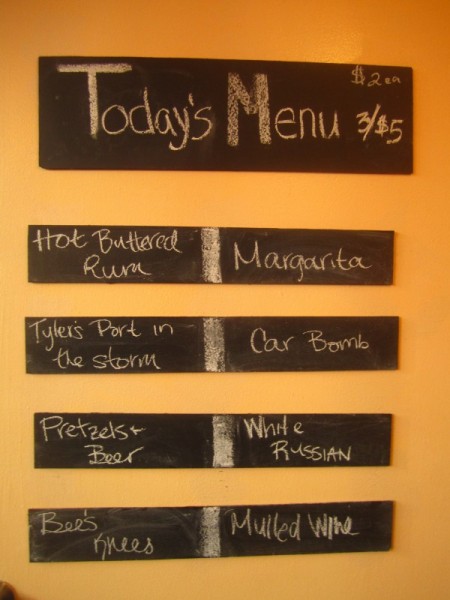 Today's Menu $2 ea 3/$5
Hot Buttered
Rum
Margarita
Tyler's Port in
the storm
Car Bomb
Pretzels +
Beer
White
RUSSIAN
Bee's
Knees
Mulled Wine